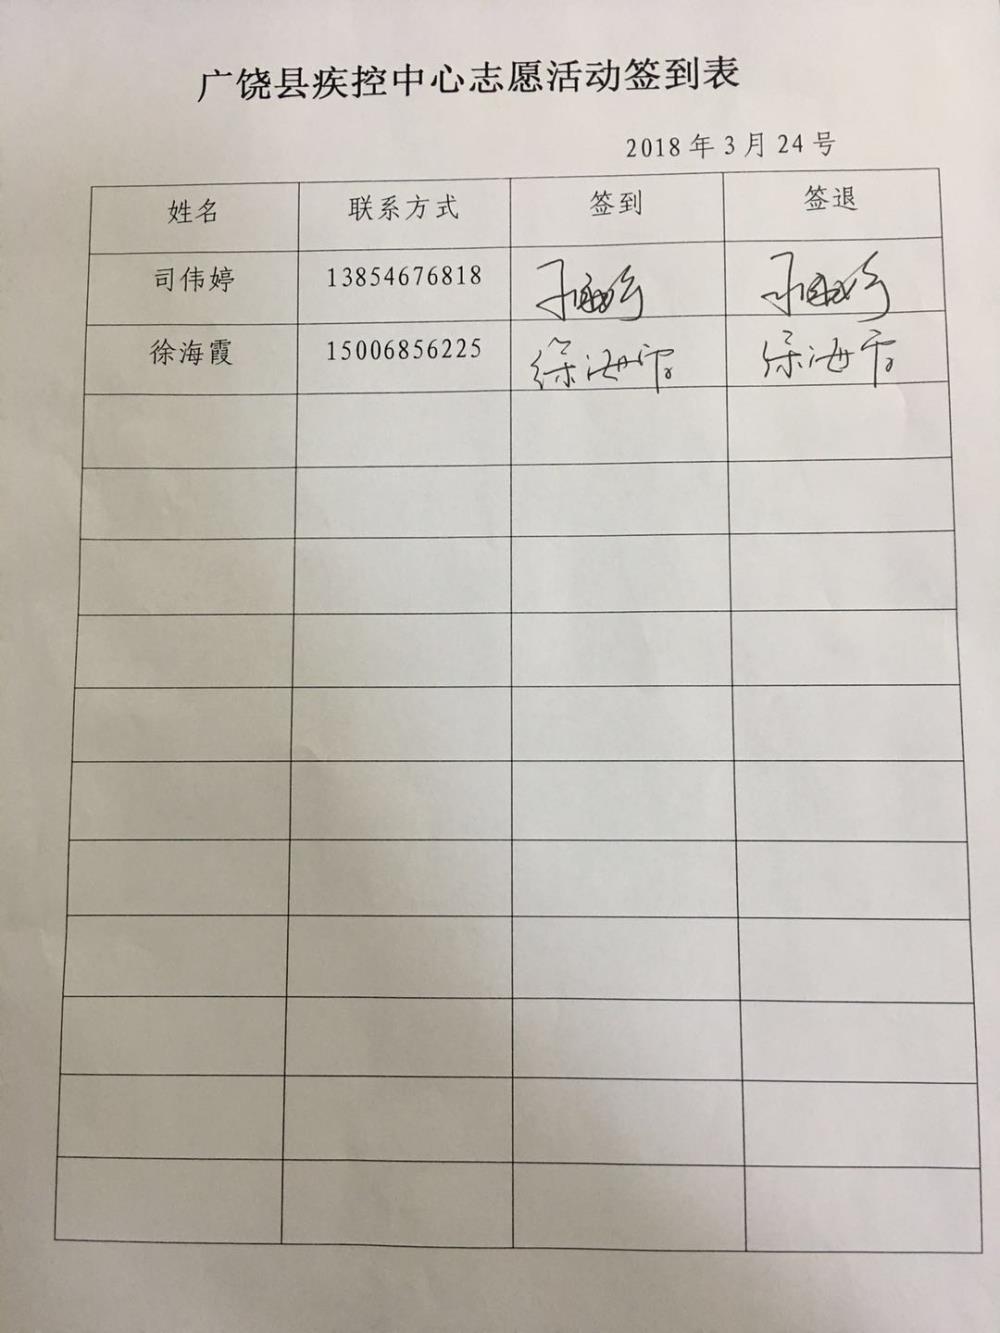 广饶县疾控中心志愿活动签到表
2018年3月24号
姓名 联系方式 签到 签退
司伟婷 13854676818
徐海霞 15006856225 徐海霞 徐海霞